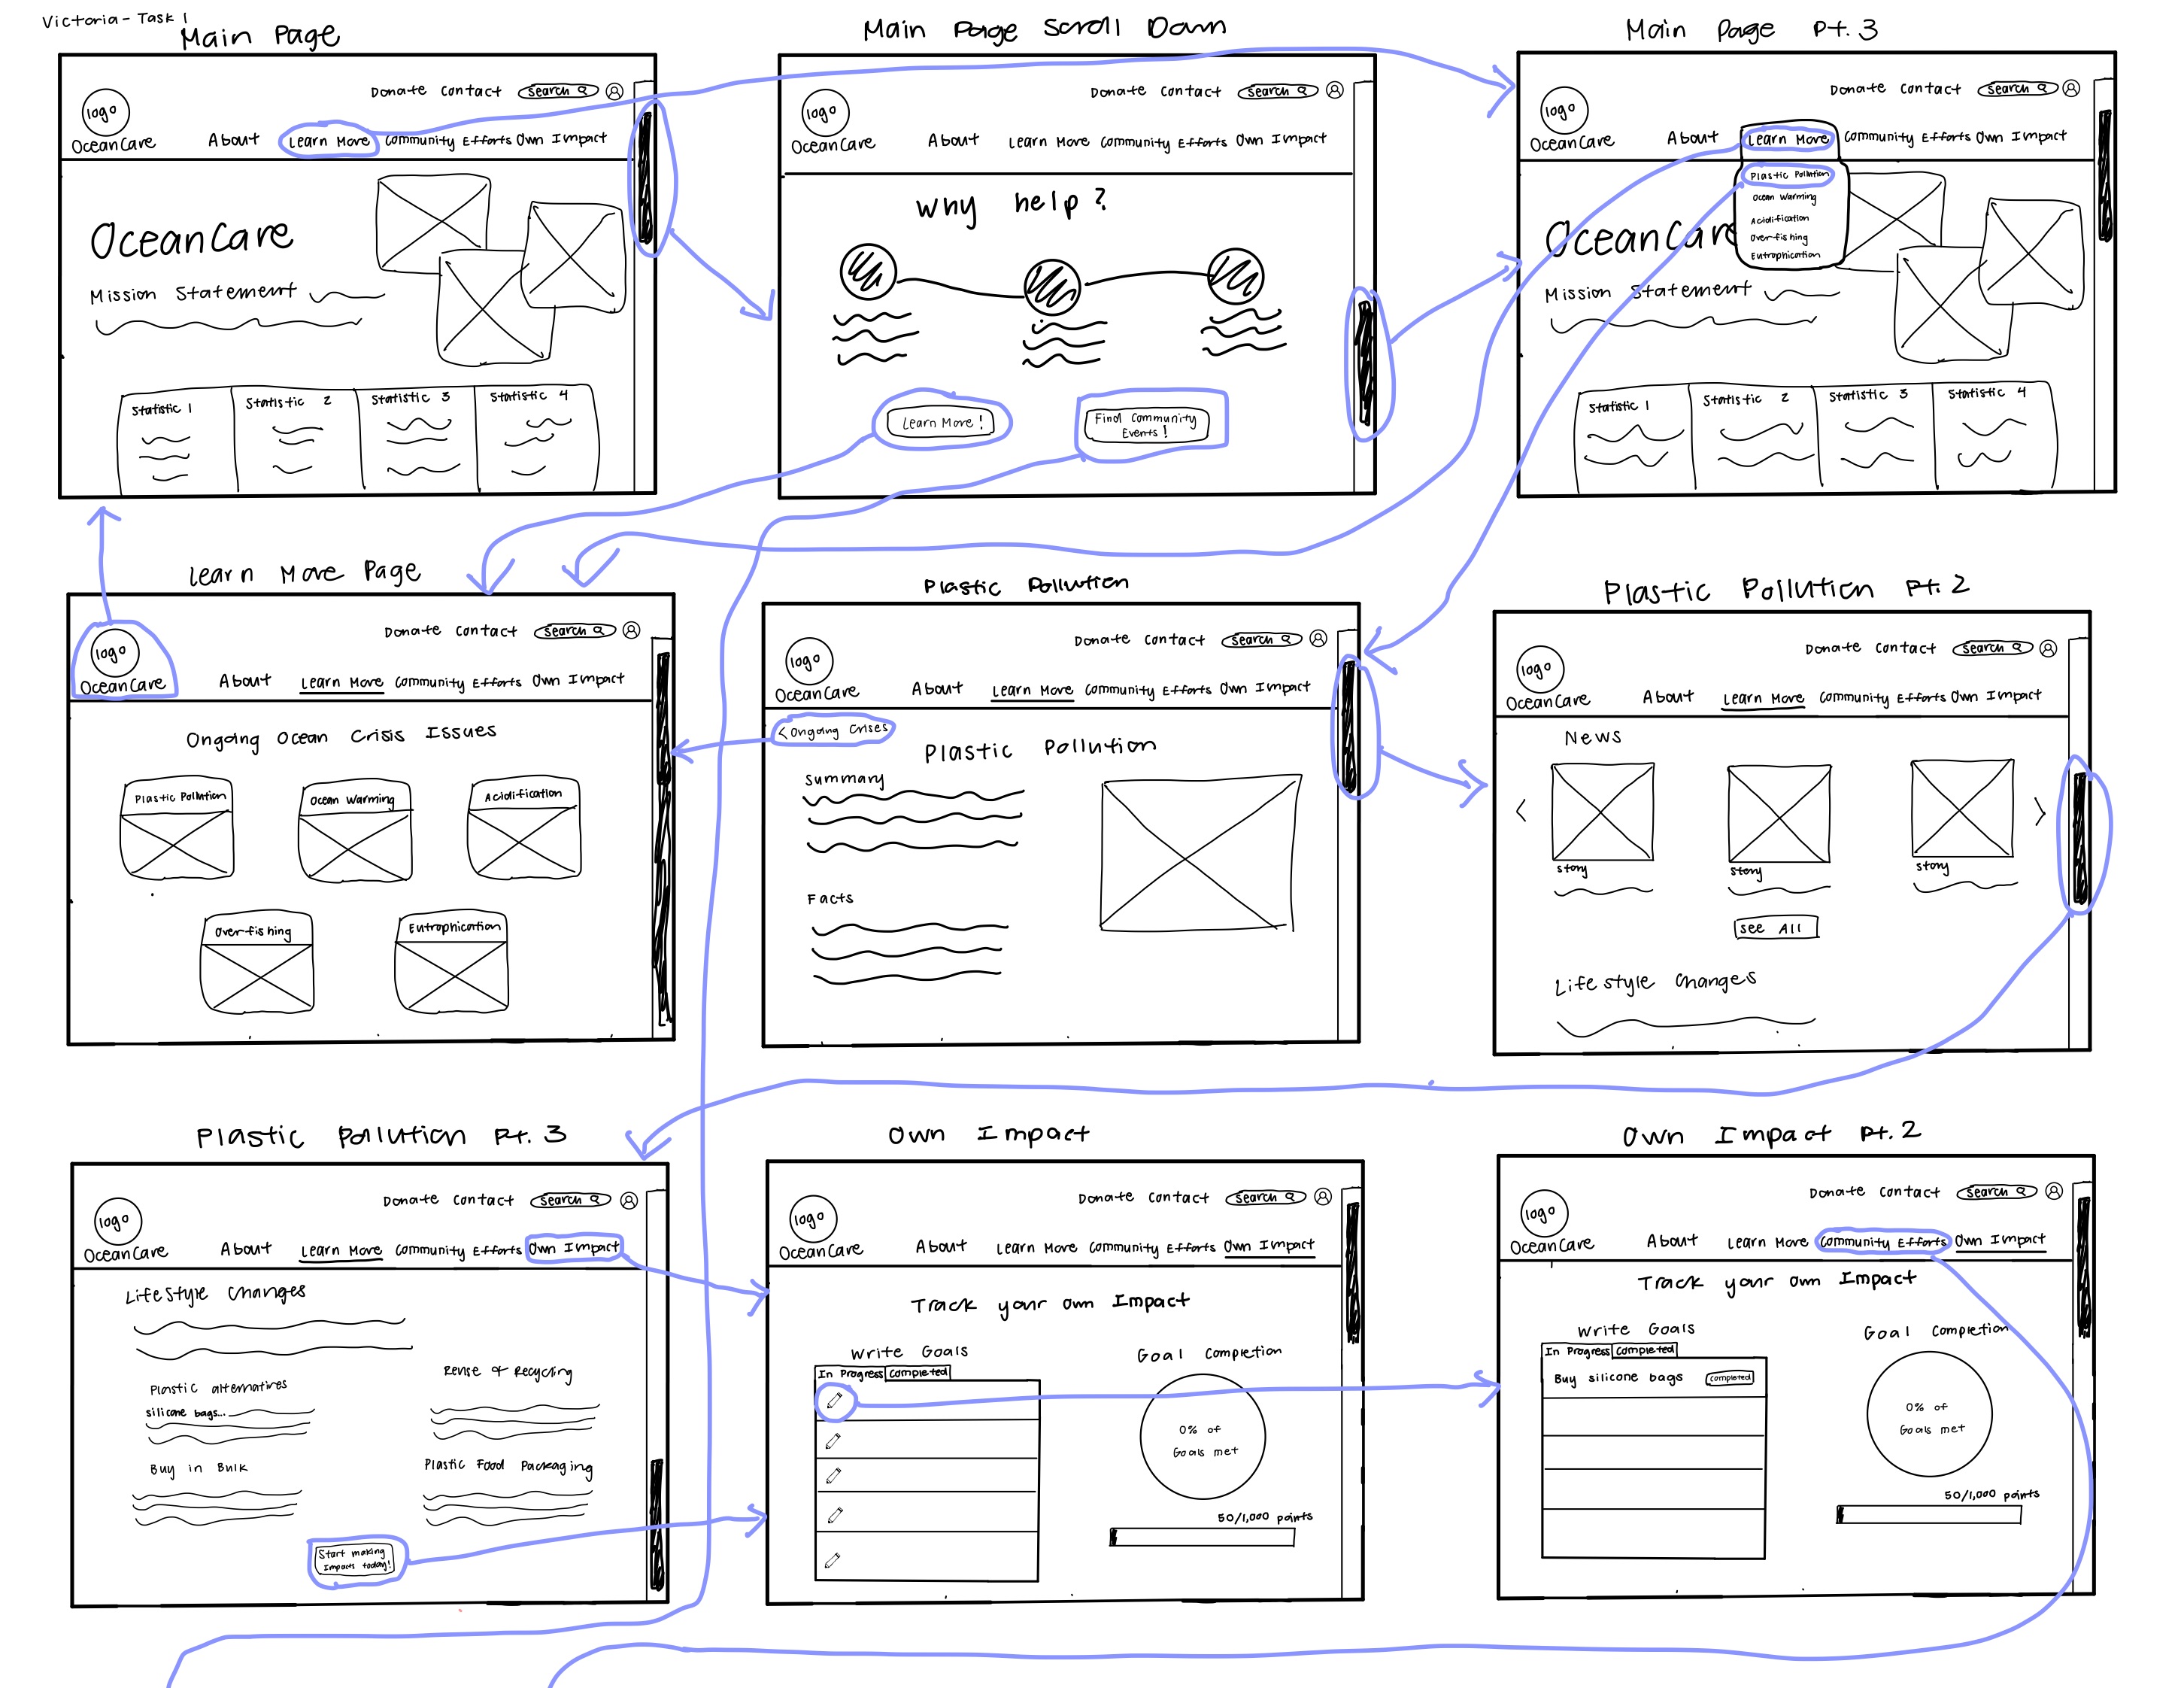 Victoria - Task 1
Main Page
Donate Contact Search
logo
OceanCare
About Learn More Community Efforts Own Impact
OceanCare
Mission Statement
Statistic 1 Statistic 2 Statistic 3 Statistic 4
Main Page Scroll Down
Donate Contact Search
logo
OceanCare
About Learn More Community Efforts Own Impact
Why help?
Learn More!
Find Community
Events!
Main Page Pt.3
Donate Contact Search
logo
OceanCare
About Learn More Community Efforts Own Impact
Plastic Pollution
Ocean Warming
Acidification
Over-fishing
Eutrophication
OceanCare
Mission Statement
Statistic 1 Statistic 2 Statistic 3 Statistic 4
Learn More Page
Donate Contact Search
logo
OceanCare
About Learn More Community Efforts Own Impact
Ongoing Ocean Crisis Issues
Plastic Pollution Ocean Warming Acidification
Over-fishing Eutrophication
Plastic Pollution
Donate Contact Search
logo
OceanCare
About Learn More Community Efforts Own Impact
< Ongoing Crises
Plastic Pollution
Summary
Facts
Plastic Pollution Pt.2
Donate Contact Search
logo
OceanCare
About Learn More Community Efforts Own Impact
News
< >
story story story
See All
Lifestyle Changes
Plastic Pollution Pt.3
Donate Contact Search
logo
OceanCare
About Learn More Community Efforts Own Impact
Lifestyle Changes
Plastic alternatives
silicone bags...
Reuse & Recycling
Buy in Bulk
Plastic Food Packaging
Start making
Impacts today!
Own Impact
Donate Contact Search
logo
OceanCare
About Learn More Community Efforts Own Impact
Track your own Impact
Write Goals
In Progress Completed
Goal Completion
0% of
Goals met
50/1,000 points
Own Impact Pt.2
Donate Contact Search
logo
OceanCare
About Learn More Community Efforts Own Impact
Track your own Impact
Write Goals
In Progress Completed
Buy silicone bags completed
Goal Completion
0% of
Goals met
50/1,000 points